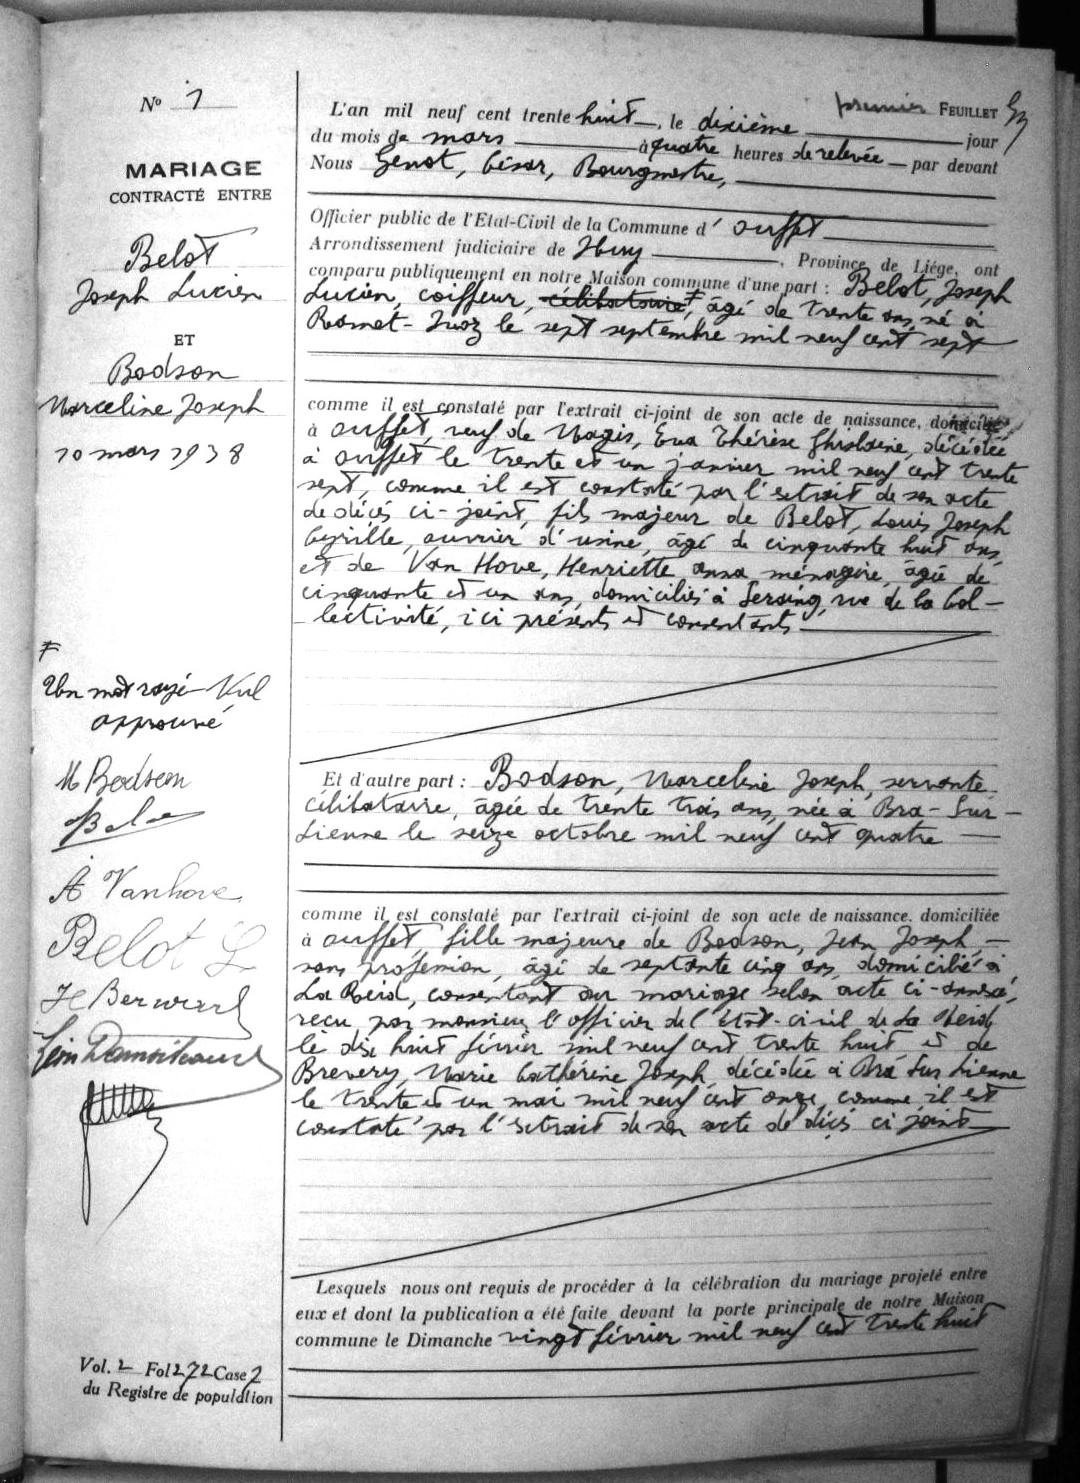 Nº 1
MARIAGE
CONTRACTÉ ENTRE
Belot
Joseph Lucien
ET
Bodson
Marceline Joseph
10 mars 1938
≠
Un mot rayé Nul
approuvé
M Bodson
A Vanhove
Belot L
Vol. 2 Fol 272 Case 2
du Registre de population
premier FEUILLET
L'an mil neuf cent trente huit, le dixième jour
du mois de mars à quatre heures de relevée par devant
Nous Genot, César, Bourgmestre,
Officier public de l'Etat-Civil de la Commune d' Ouffet
Arrondissement judiciaire de Huy, Province de Liége, ont
comparu publiquement en notre Maison commune d'une part : Belot, Joseph
Lucien, coiffeur, célibataire ≠, âgé de trente ans, né à
Ramet-Ivoz le sept septembre mil neuf cent sept
comme il est constaté par l'extrait ci-joint de son acte de naissance, domicilié
à Ouffet, veuf de Magis, Eva Thérèse Ghislaine, décédée
à Ouffet le trente et un janvier mil neuf cent trente
sept, comme il est constaté par l'extrait de son acte
de décès ci-joint, fils majeur de Belot, Louis Joseph
Cyrille, ouvrier d'usine, âgé de cinquante huit ans,
et de Van Hove, Henriette Anna, ménagère, âgée de
cinquante et un ans, domiciliés à Seraing, rue de la Col-
lectivité, ici présents et consentants
Et d'autre part : Bodson, Marceline Joseph, servante
célibataire, âgée de trente trois ans, née à Bra-Sur-
Lienne le seize octobre mil neuf cent quatre
comme il est constaté par l'extrait ci-joint de son acte de naissance, domiciliée
à Ouffet, fille majeure de Bodson, Jean Joseph,
sans profession, âgé de septante cinq ans, domicilié à
La Reid, consentant au mariage selon acte ci-annexé,
reçu par monsieur l'officier de l'état-civil de La Reid
le dix huit février mil neuf cent trente huit et de
Brevery, Marie Catherine Joseph, décédée à Bra Sur Lienne
le trente et un mai mil neuf cent onze, comme il est
constaté par l'extrait de son acte de décès ci joint
Lesquels nous ont requis de procéder à la célébration du mariage projeté entre
eux et dont la publication a été faite devant la porte principale de notre Maison
commune le Dimanche vingt février mil neuf cent trente huit